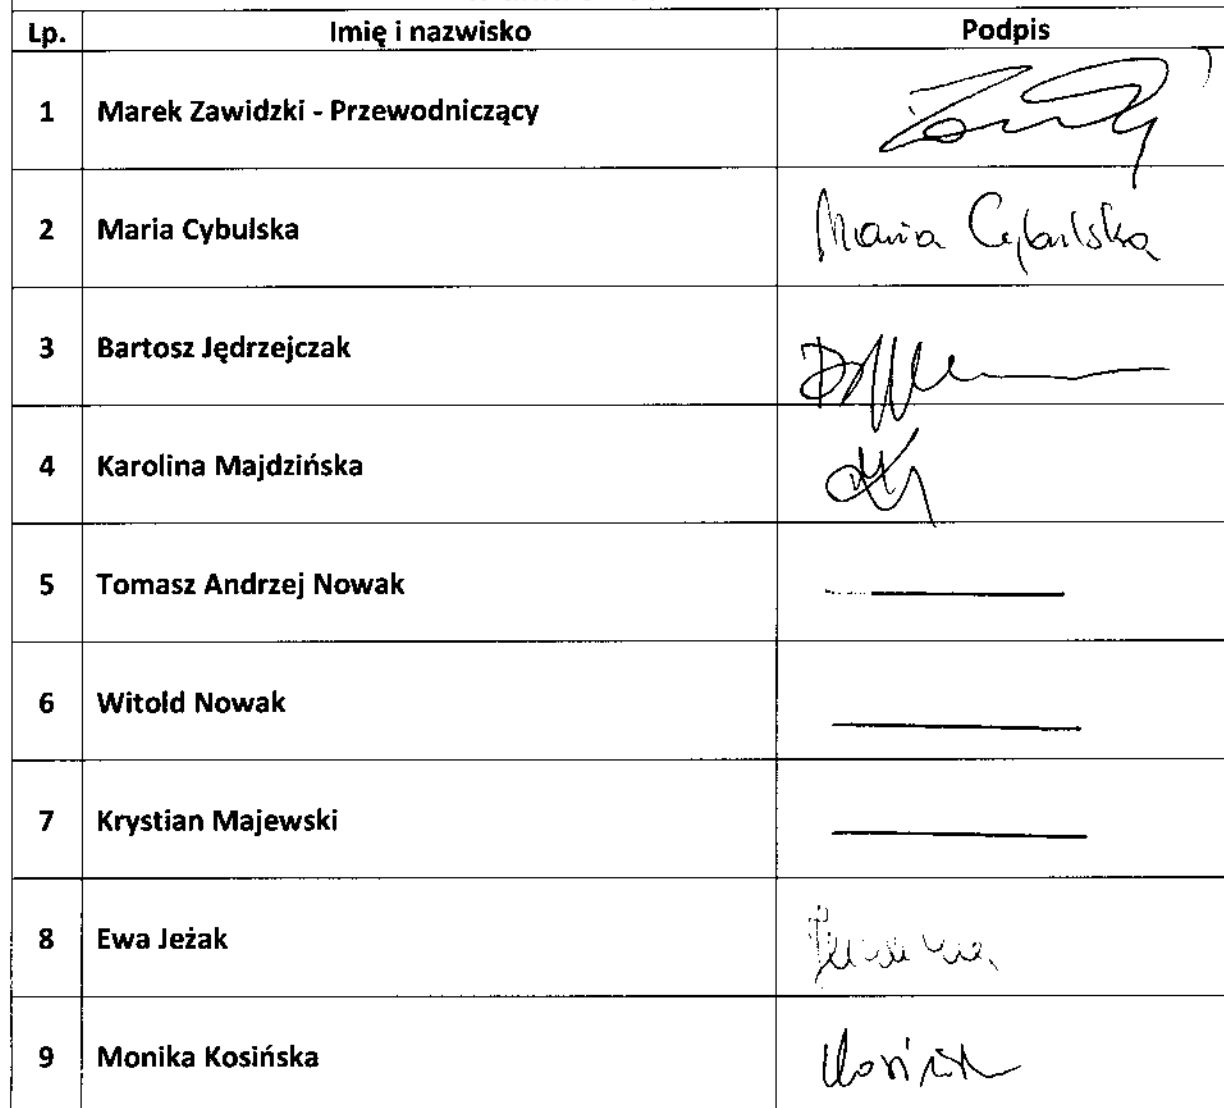 Lp. Imię i nazwisko Podpis
1 Marek Zawidzki - Przewodniczący
2 Maria Cybulska Maria Cybulska
3 Bartosz Jędrzejczak
4 Karolina Majdzińska
5 Tomasz Andrzej Nowak
6 Witold Nowak
7 Krystian Majewski
8 Ewa Jeżak
9 Monika Kosińska